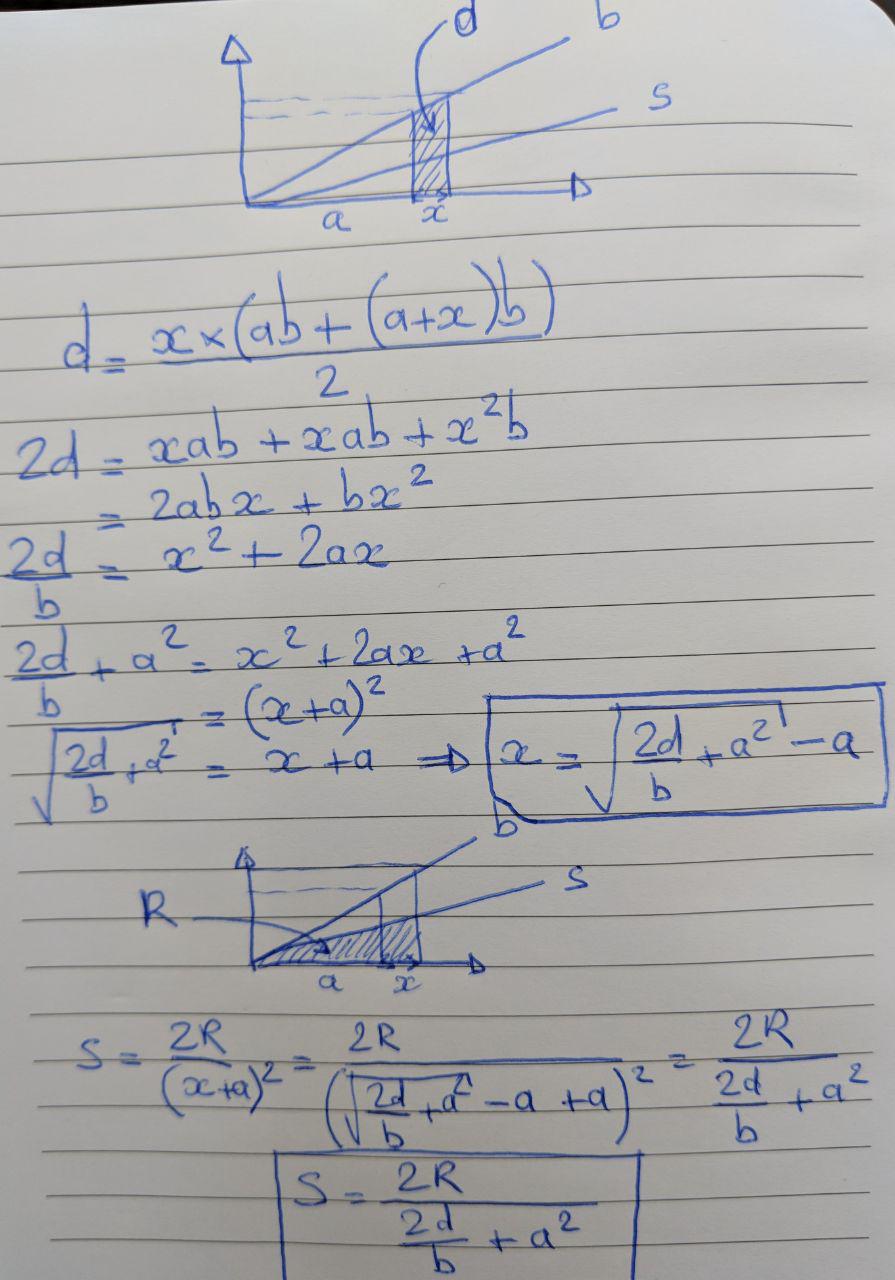 d b
s
a x
d = x×(ab + (a+x)b) / 2
2d = xab + xab + x²b
= 2abx + bx²
2d/b = x² + 2ax
2d/b + a² = x² + 2ax + a²
= (x+a)²
√(2d/b + a²) = x + a ⇒ x = √(2d/b + a²) - a
b
s
R
a x
S = 2R/(x+a)² = 2R/(√(2d/b + a²) - a + a)² = 2R/(2d/b + a²)
S = 2R/(2d/b + a²)